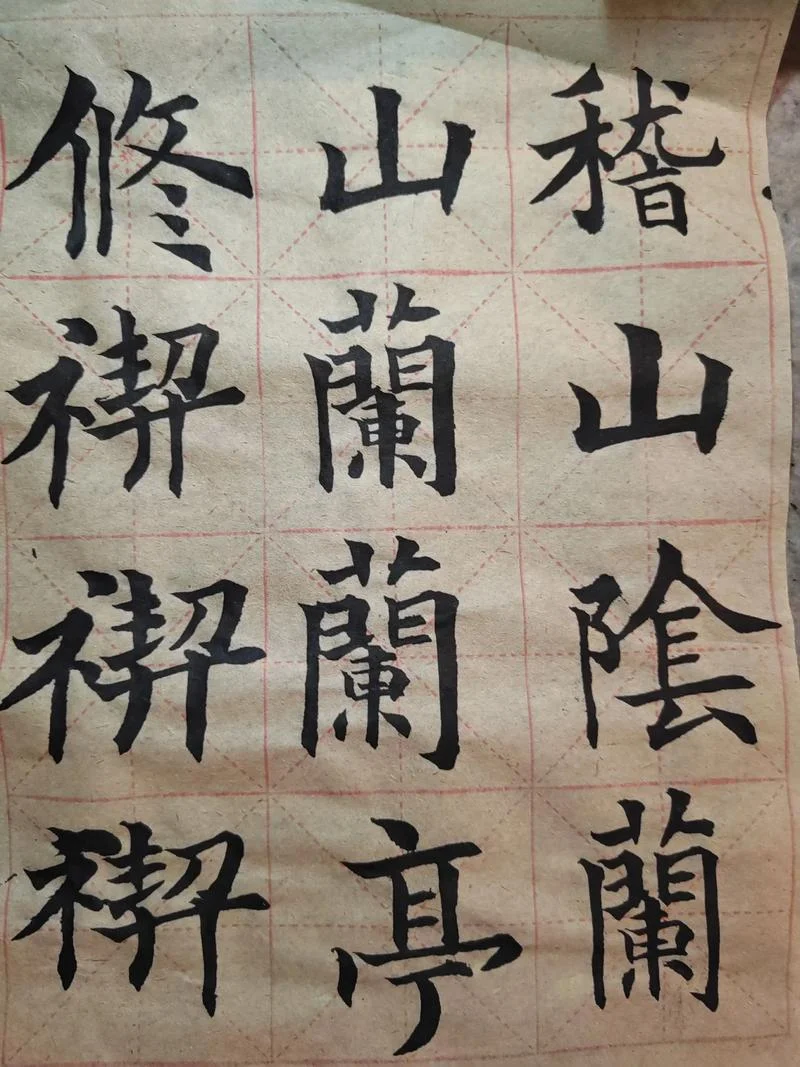 稽山陰蘭
山蘭蘭亭
修禊禊稧